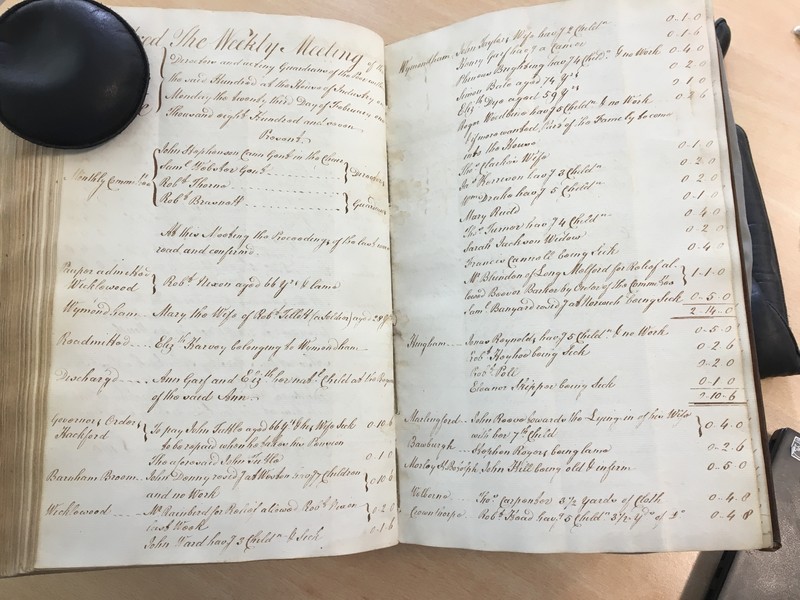 The Weekly Meeting of the
Directors and acting Guardians of the Poor
the said Hundred at the House of Industry on
Monday the twenty third Day of February one
Thousand eight Hundred and
Present
John Stephenson Cann Gent in the Chair
Sam.l Webster Gent
Directors
Monthly Committee
Rob.t Thorne
Rob.t
Guardians
At this Meeting the Proceedings of the last were
read and confirmed.
Pauper admitted
Wicklewood
Rob.t Nixon aged 66 Y.rs & lame
Wymondham Mary the Wife of Rob.t Tillett (a Soldier) aged
Readmitted Eliz.th Harvey belonging to Wymondham
Discharg'd Ann Garf and Eliz.th her nat.l Child at the Request
of the said Ann
Governors Order
Hackford
To pay John Tuttle aged 66 Y.rs & his Wife Sick
to be repaid when he takes his Pension
0 10 6
The aforesaid John Tuttle 0 1 0
Barnham Broom John Denny resid.g at Weston hav.g 7 Children
and no Work
0 10 6
Wicklewood M.r Rainbird for Relief allowed Rob.t Nixon
last Week
0 2 6
John Ward hav.g 3 Child.n & Sick 0 1 6
Wymondham John Taylor & Wife hav.g 2 Child.n 0 1 0
Henry Garf hav.g a Cancer 0 1 6
Phineas Brighting hav.g 4 Child.n & no Work 0 4 0
Simon Bale aged 74 Y.rs 0 2 0
Eliz.th Dye aged 59 Y.rs 0 1 0
Roger Woodbine hav.g 5 Child.n & no Work 0 2 6
if more wanted, Part of the Family to come
into the House
Tho.s Larkin Wife 0 1 0
Ja.s Kerrison hav.g 3 Child.n 0 2 0
W.m Drake hav.g 5 Child.n 0 2 0
Mary Rudd 0 1 0
Tho.s Turner hav.g 4 Child.n 0 4 0
Sarah Jackson Widow 0 2 0
Frances Cannell being Sick 0 4 0
M.r Blendon of Long Melford for Relief al-
lowed Beever Barker by Order of the Committee
1 1 0
Sam.l Banyard resid.g at Norwich being Sick 0 5 0
2 14 0
Hingham James Reynolds hav.g 5 Child.n & no Work 0 5 0
Rob.t Hayhoe being Sick 0 2 6
Rob.t Poll 0 2 0
Eleanor Skipper being Sick 0 1 0
0 10 6
Marlingford John Reeve towards the Lying in of his Wife
with her 7.th Child
0 4 0
Bawburgh Stephen Roger being lame 0 2 6
Morley S.t Botolph John Hill being old & infirm 0 5 0
Welborne Tho.s Carpenter 3½ Yards of Cloth 0 4 8
Crownthorpe Rob.t Head hav.g 5 Child.n 3½ Y.ds of D.o 0 4 8